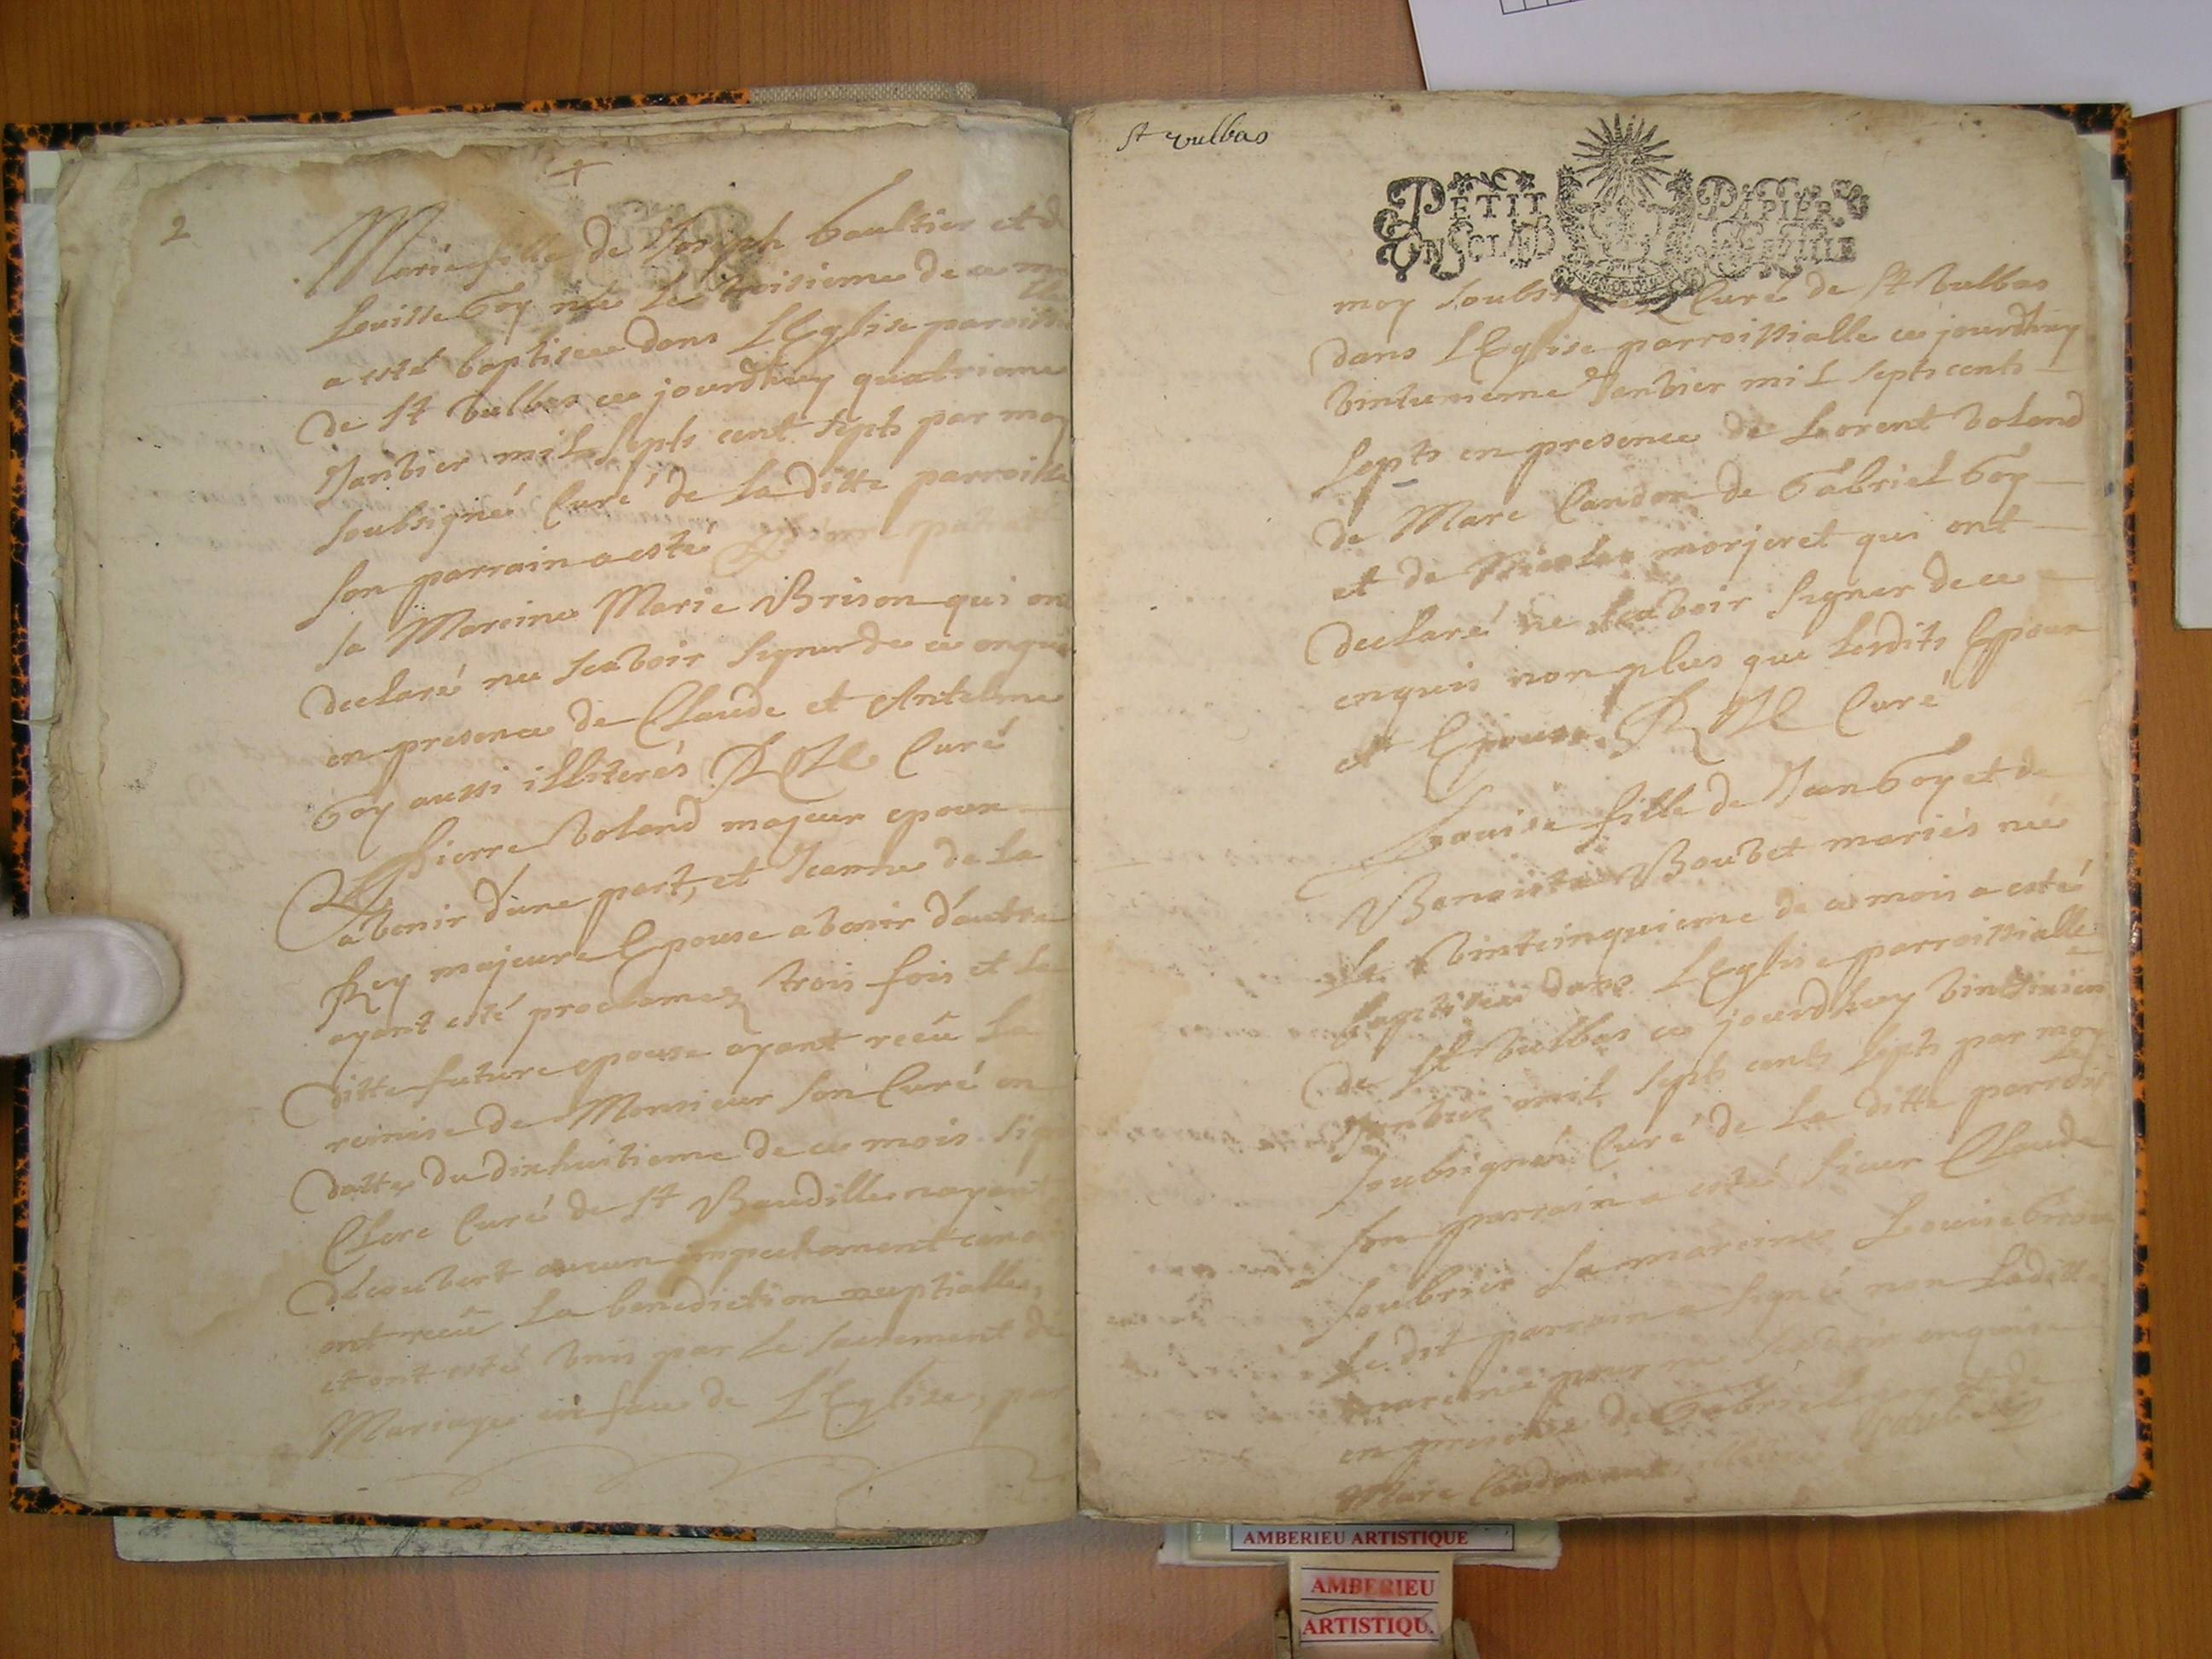 2
Marie fille de Joseph Gaultier et d
Louisse Goy née le troisieme de ce m
a esté baptisee dans LEglise paroiss
de St Vulbas ce jourdhuy quatrieme
Janvier mil septs cent septs par moy
soubsigné Curé de la ditte parroisse
son parrain a esté
sa Mareine Marie Brison qui on
declaré ne scavoir signer de ce enqui
en presence de Claude et Antelme
Goy aussi illiterés Curé
Pierre Voland majeur epoux
avenir d'une part, et Jeanne de la
Rey majeure Epouse avenir d'autre
ayant esté proclamez trois fois et la
ditte future epouse ayant receu la
remise de Monsieur son Curé en
datte du dixhuitieme de ce mois sig
Clerc Curé de St Baudille nayant
découvert aucun empechement
ont receu la benediction nuptialle,
et ont esté unis par le sacrement de
Mariage en face de L'Eglise, par
St Vulbas
PETIT PAPIER
moy soubs Curé de St Vulbas
dans LEglise parroissialle ce jourdhuy
vintunieme Janvier mil septs cents
septs en presence de Lorent Voland
de Marc Candon de Gabriel Goy
et de Nicolas morjeret qui ont
declaré ne scavoir signer de ce
enquis non plus que lesdits Epoux
et Epouse Curé
Louise fille de Jean Goy et de
Benoiste Boubet mariés née
le vintcinquieme de ce mois a esté
baptisee dans LEglise parroissialle
de St Vulbas ce jourdhuy vintsixiem
Janvier mil septs cents septs par moy
soubsigné Curé de la ditte parroiss
son parrain a esté sieur Claude
Soubrier sa mareine Louise
le dit parrain a signé non laditte
mareine pour ne scavoir enquise
en presence de Gabriel Goy et de
Marc Candon
AMBERIEU ARTISTIQUE
AMBERIEU
ARTISTIQU